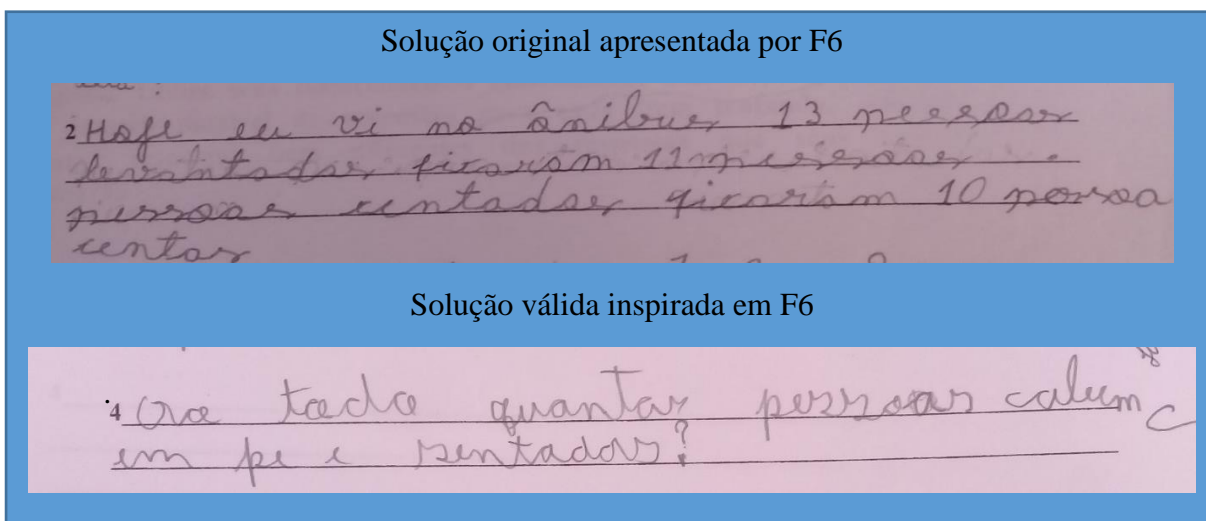 Solução original apresentada por F6
2 Hoje eu vi no ânibus 13 pessoas
levantadas ficaram 11 pessoas
pessoas centadas ficaram 10
centas
Solução válida inspirada em F6
4 Ao todo quantas pessoas cabem
em pe e sentados?